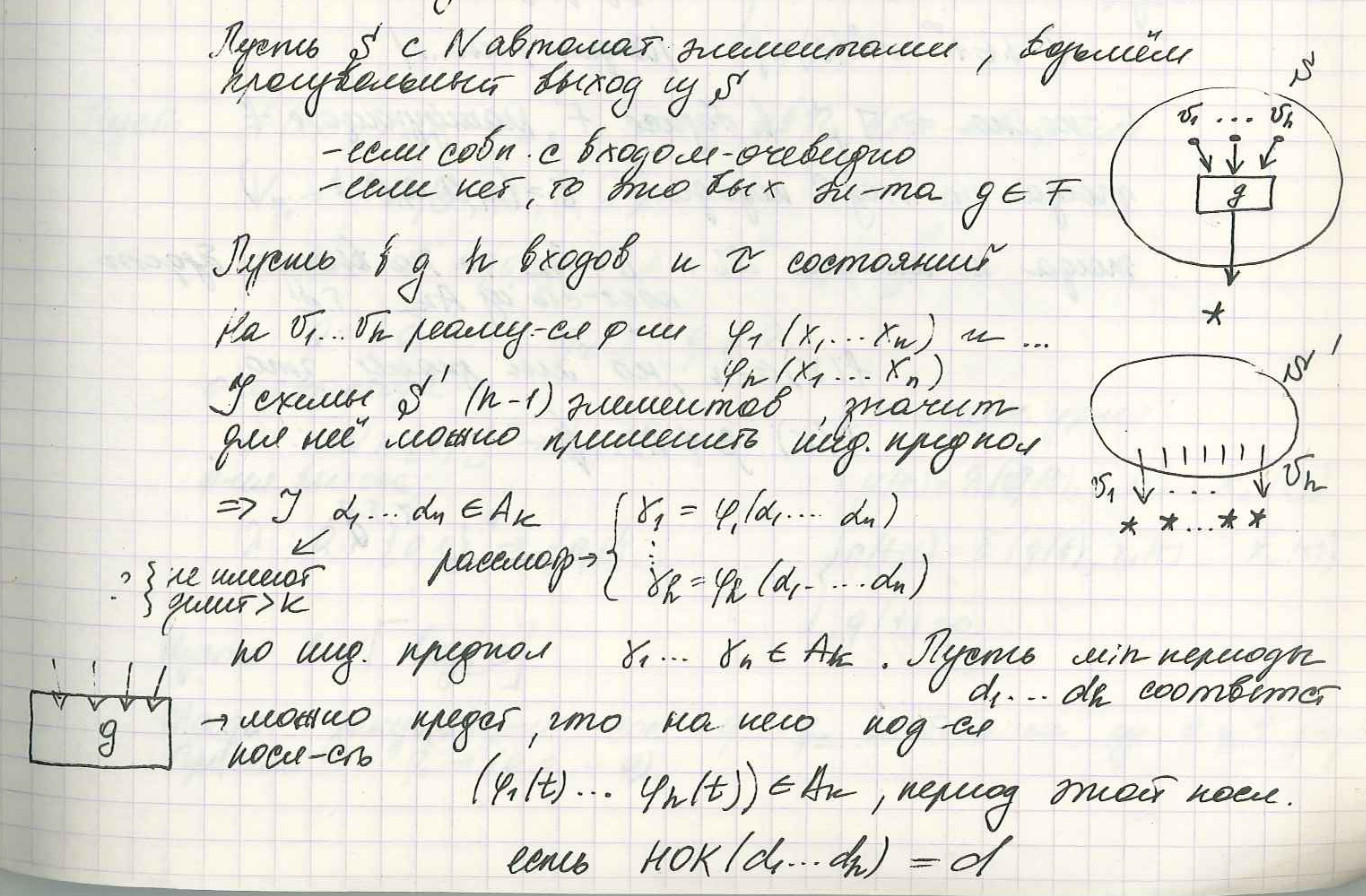 Пусть S с N автомат элементами, возьмём
произвольный выход из S
- если совп. с входом - очевидно
- если нет, то это вых эл-та g ∈ F
Пусть в g h входов и τ состояний
На v₁...vₕ реализу-ся ф ли φ₁(x₁...xₙ) и ...
φₕ(x₁...xₙ)
У схемы S' (n-1) элементов, значит
для неё можно применить инд. предпол
=> ∃ α₁...αₙ ∈ Aₖ
рассмотр → { γ₁ = φ₁(α₁...αₙ)
⋮
γₕ = φₕ(α₁...αₙ)
? { не имеют
делит > k
по инд. предпол γ₁...γₙ ∈ Aₖ. Пусть min периоды
d₁...dₕ соответст
→ можно предст, что на него под-ся
посл-сть
(φ₁(t)... φₕ(t)) ∈ Aₖ, период этой посл.
есть НОК(d₁...dₕ) = d
S
v₁ ... vₕ
g
*
S'
v₁ ... vₕ
* *...* *
g